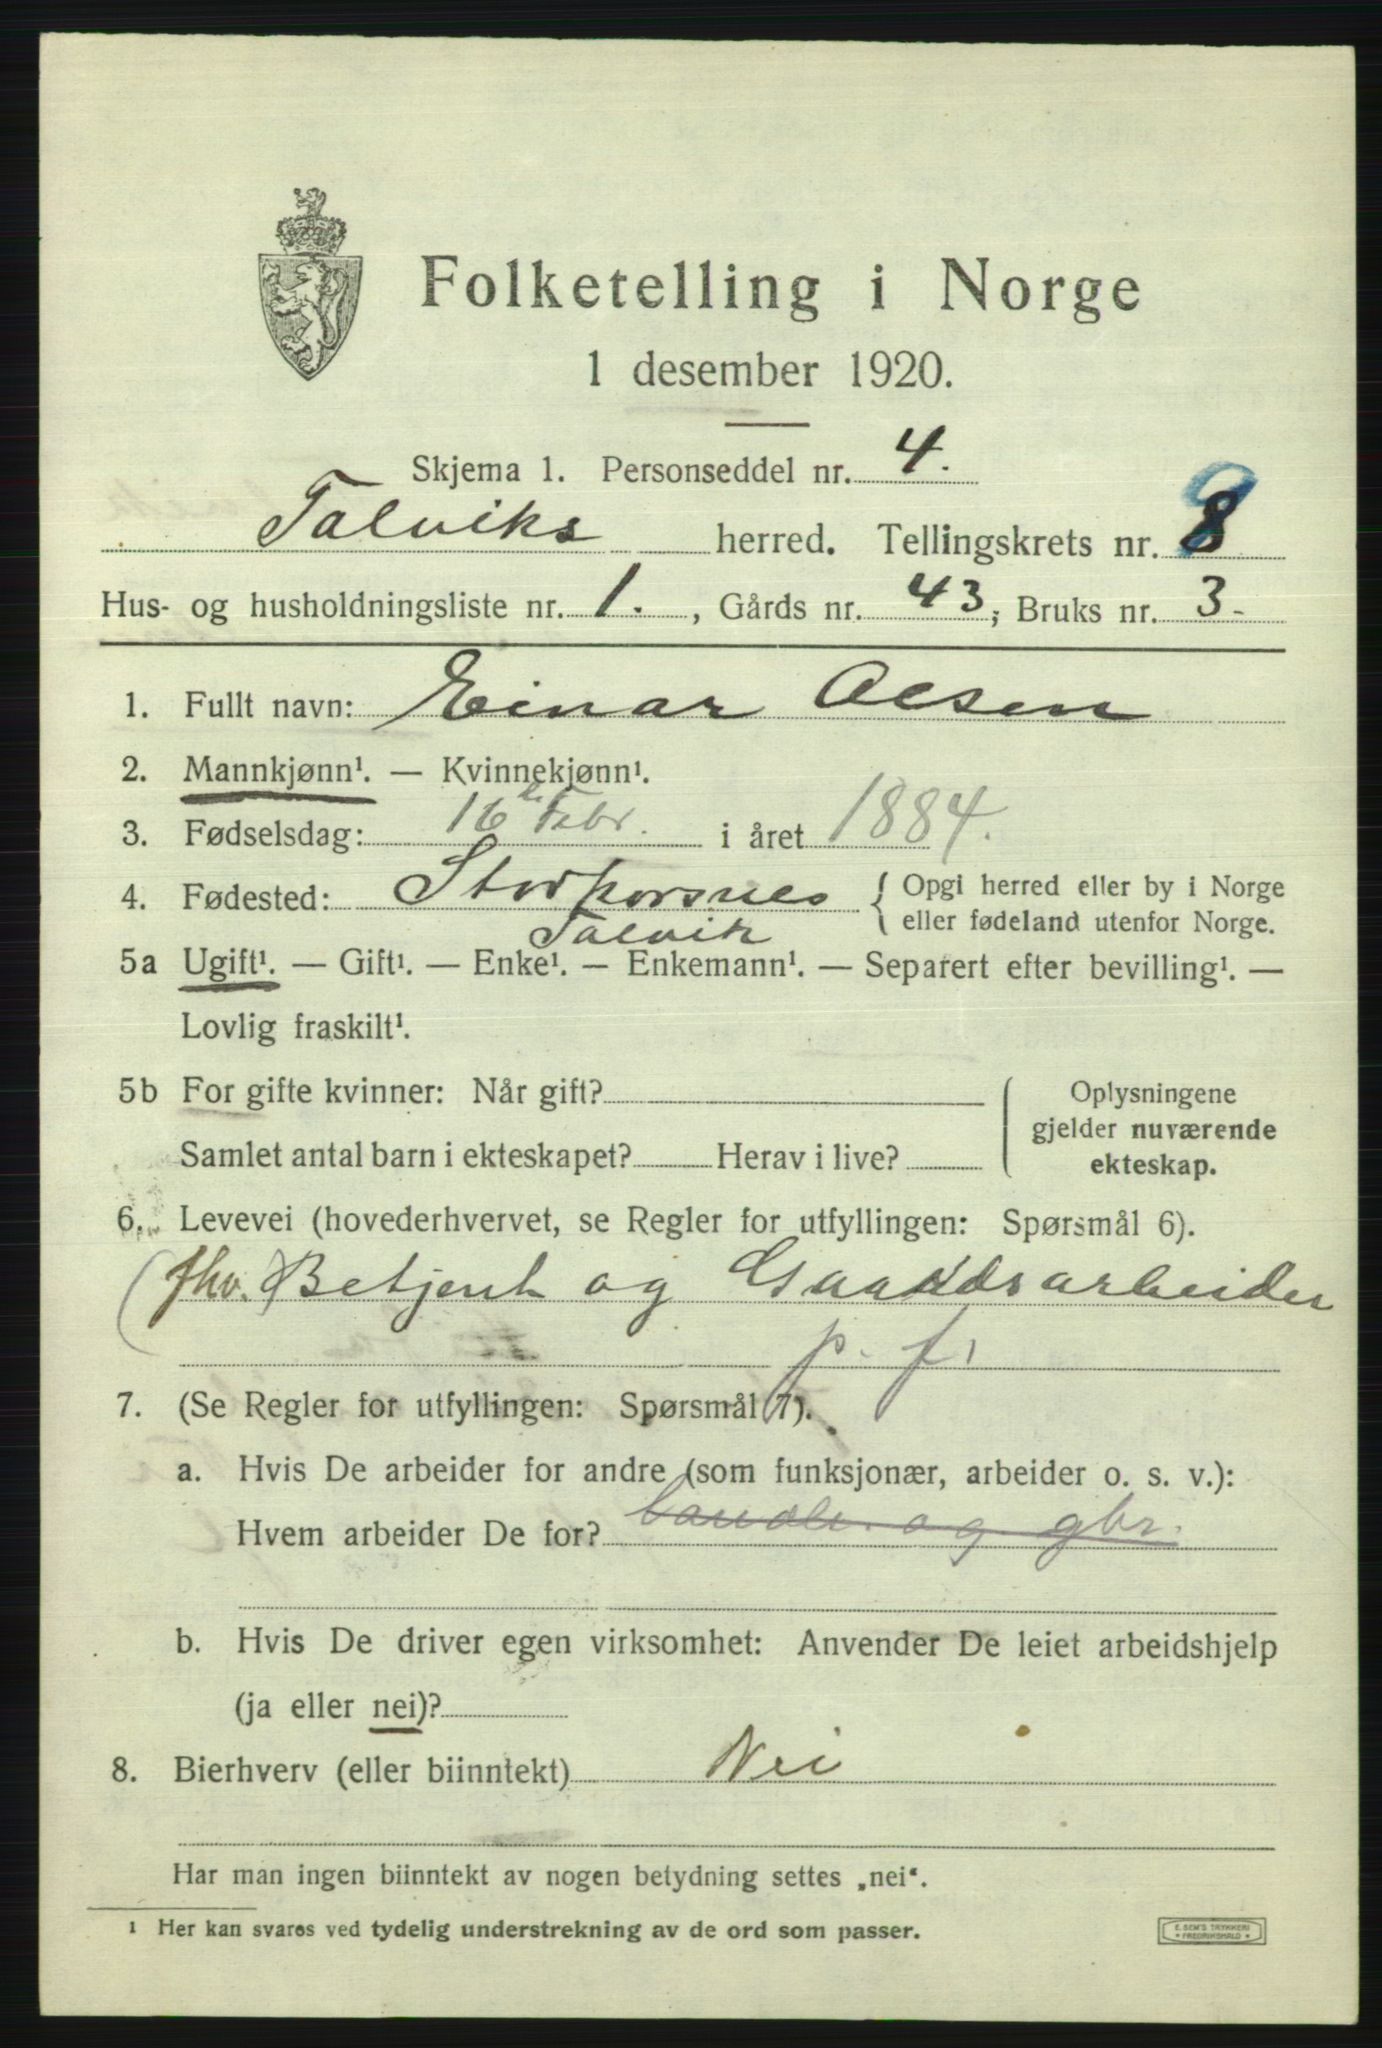 Folketelling i Norge
1 desember 1920.
Skjema 1. Personseddel nr. 4.
Talviks herred. Tellingskrets nr. 8
Hus- og husholdningsliste nr. 1., Gårds nr. 43; Bruks nr. 3-
1. Fullt navn: Einar Olsen
2. Mannkjønn¹. — Kvinnekjønn¹.
3. Fødselsdag: 16de Febr. i året 1884.
4. Fødested: Storkorsnes { Opgi herred eller by i Norge
eller fødeland utenfor Norge.
Talvik
5a Ugift¹. — Gift¹. — Enke¹. — Enkemann¹. — Separert efter bevilling¹. —
Lovlig fraskilt¹.
5b For gifte kvinner: Når gift? Oplysningene
gjelder nuværende
Samlet antal barn i ekteskapet? Herav i live? ekteskap.
6. Levevei (hovederhvervet, se Regler for utfyllingen: Spørsmål 6).
(fhv.) Betjent og Gaardsarbeider
p. f.
7. (Se Regler for utfyllingen: Spørsmål 7).
a. Hvis De arbeider for andre (som funksjonær, arbeider o. s. v.):
Hvem arbeider De for? og gbr.
b. Hvis De driver egen virksomhet: Anvender De leiet arbeidshjelp
(ja eller nei)?
8. Bierhverv (eller biinntekt) Nei
Har man ingen biinntekt av nogen betydning settes „nei“.
¹ Her kan svares ved tydelig understrekning av de ord som passer.
E. SEM'S TRYKKERI
FREDRIKSHALD